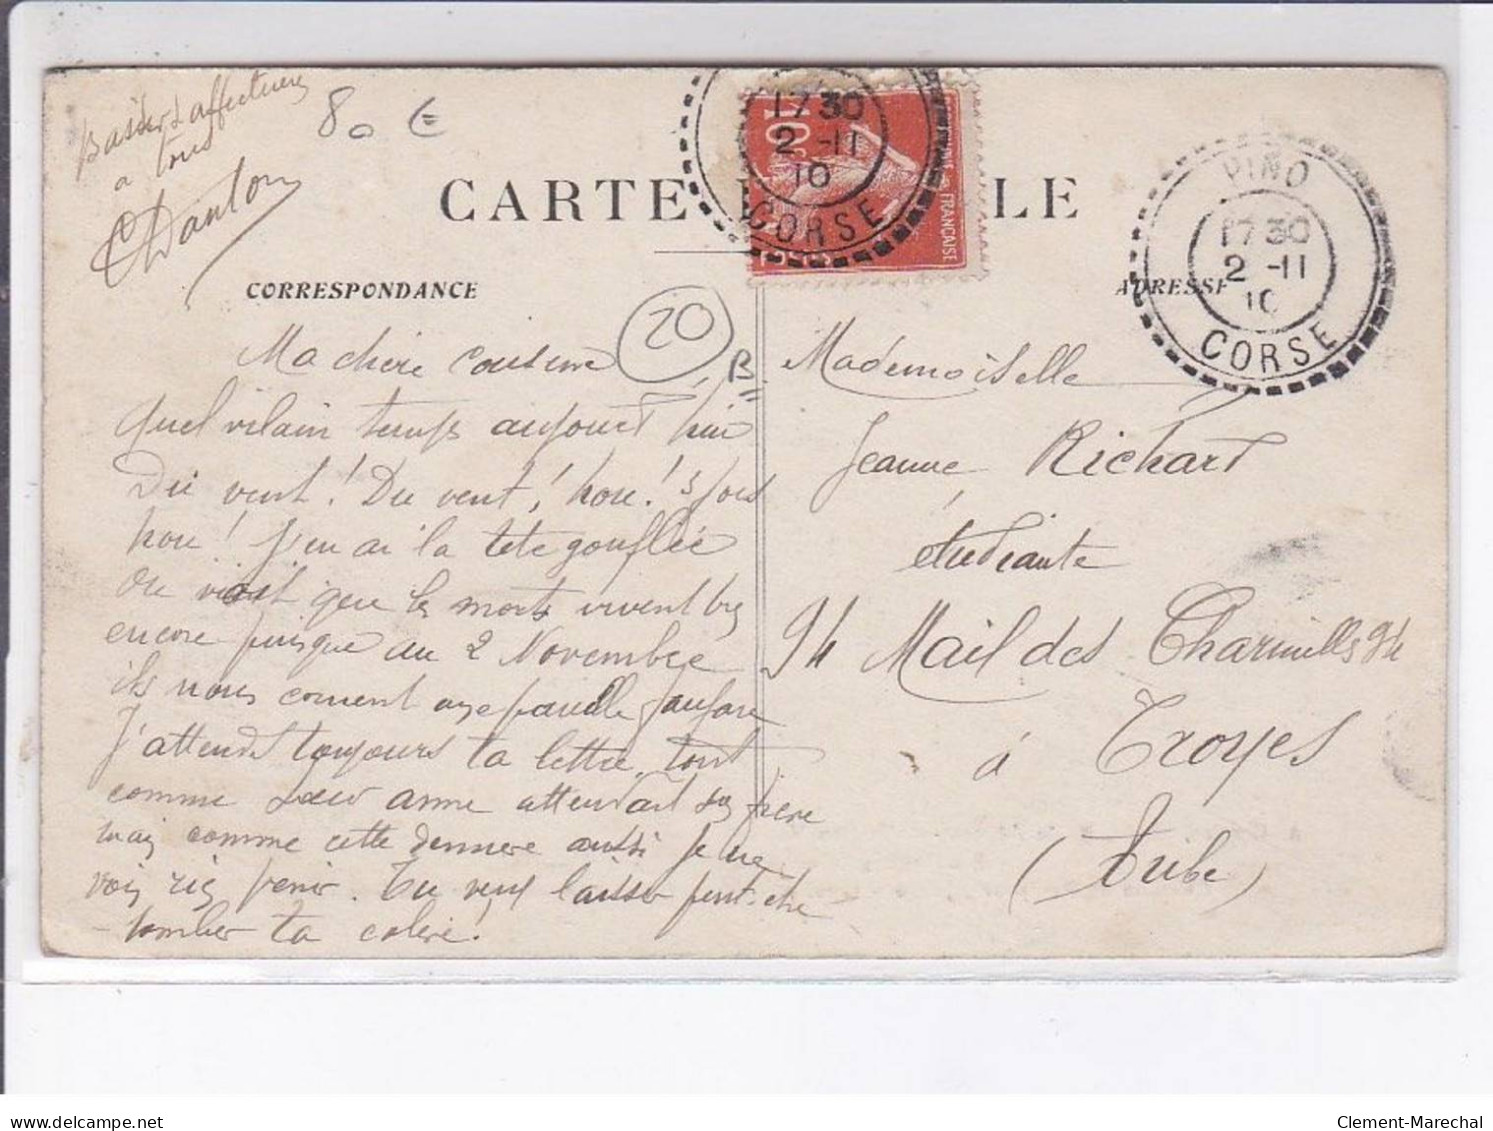 Baisers affectueux
a tous
Danton
80 €
CARTE LE
10c
FRANÇAISE
17 30
2 -11
10
CORSE
PINO
17 30
2 -11
10
CORSE
CORRESPONDANCE
ADRESSE
20
B
Ma chère cousine
Quel vilain temps aujourd'hui
Du vent! Du vent! hou! 3 fois
hou! J'en ai la tête gonflée
On que les morts vivent
encore puisque au 2 Novembre
ils nous cornent pareille fanfare
J'attends toujours ta lettre, tout
comme sœur anne attendait son frère
mais comme cette dernière aussi je ne
vois rien venir. Tu veux laisser peut-être
tomber ta colère!
Mademoiselle
Jeanne Richard
étudiante
94 Mail des Charmilles 94
à Troyes
(Aube)
delcampe.net
Clement-Marechal